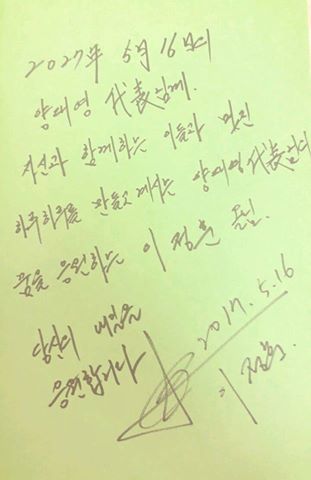 2027年 5月 16日에
양대영 代表님께.
자신과 함께하는 이들과 멋진
하루하루를 만들고 계시는 양대영代表님의
꿈을 응원하는 이정훈 드림.
당신의 내일을
응원합니다
2017. 5. 16
이정훈.